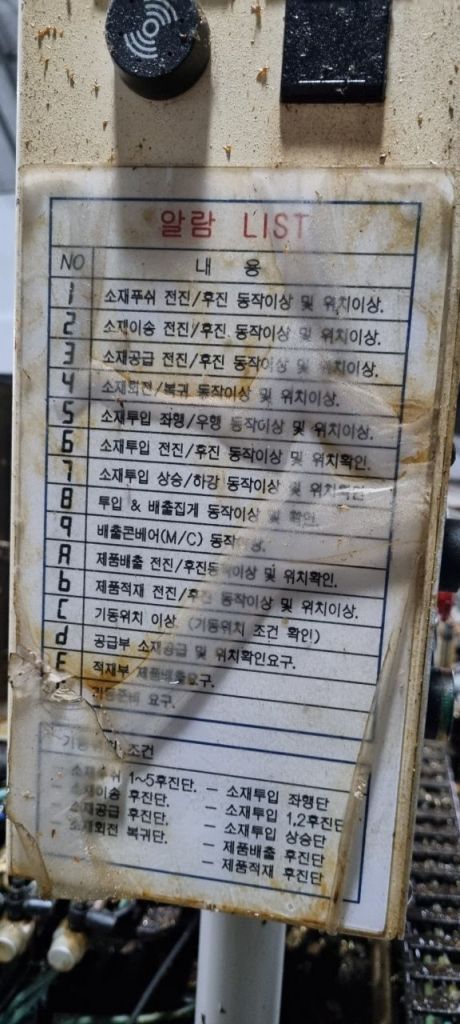 알람 LIST
NO 내 용
1 소재푸쉬 전진/후진 동작이상 및 위치이상.
2 소재이송 전진/후진 동작이상 및 위치이상.
3 소재공급 전진/후진 동작이상 및 위치이상.
4 소재회전/복귀 동작이상 및 위치이상.
5 소재투입 좌행/우행 동작이상 및 위치이상.
6 소재투입 전진/후진 동작이상 및 위치확인.
7 소재투입 상승/하강 동작이상 및 위치확인
8 투입 & 배출집게 동작이상 및 확인.
9 배출콘베어(M/C) 동작이상.
A 제품배출 전진/후진동작이상 및 위치확인.
b 제품적재 전진/후진 동작이상 및 위치이상.
C 기동위치 이상 (기동위치 조건 확인)
d 공급부 소재공급 및 위치확인요구.
E 적재부 제품배출요구.
기동준비 요구.
기동위치 조건
소재푸쉬 1~5후진단. - 소재투입 좌행단
소재이송 후진단. - 소재투입 1,2후진단
소재공급 후진단. - 소재투입 상승단
소재회전 복귀단. - 제품배출 후진단
- 제품적재 후진단